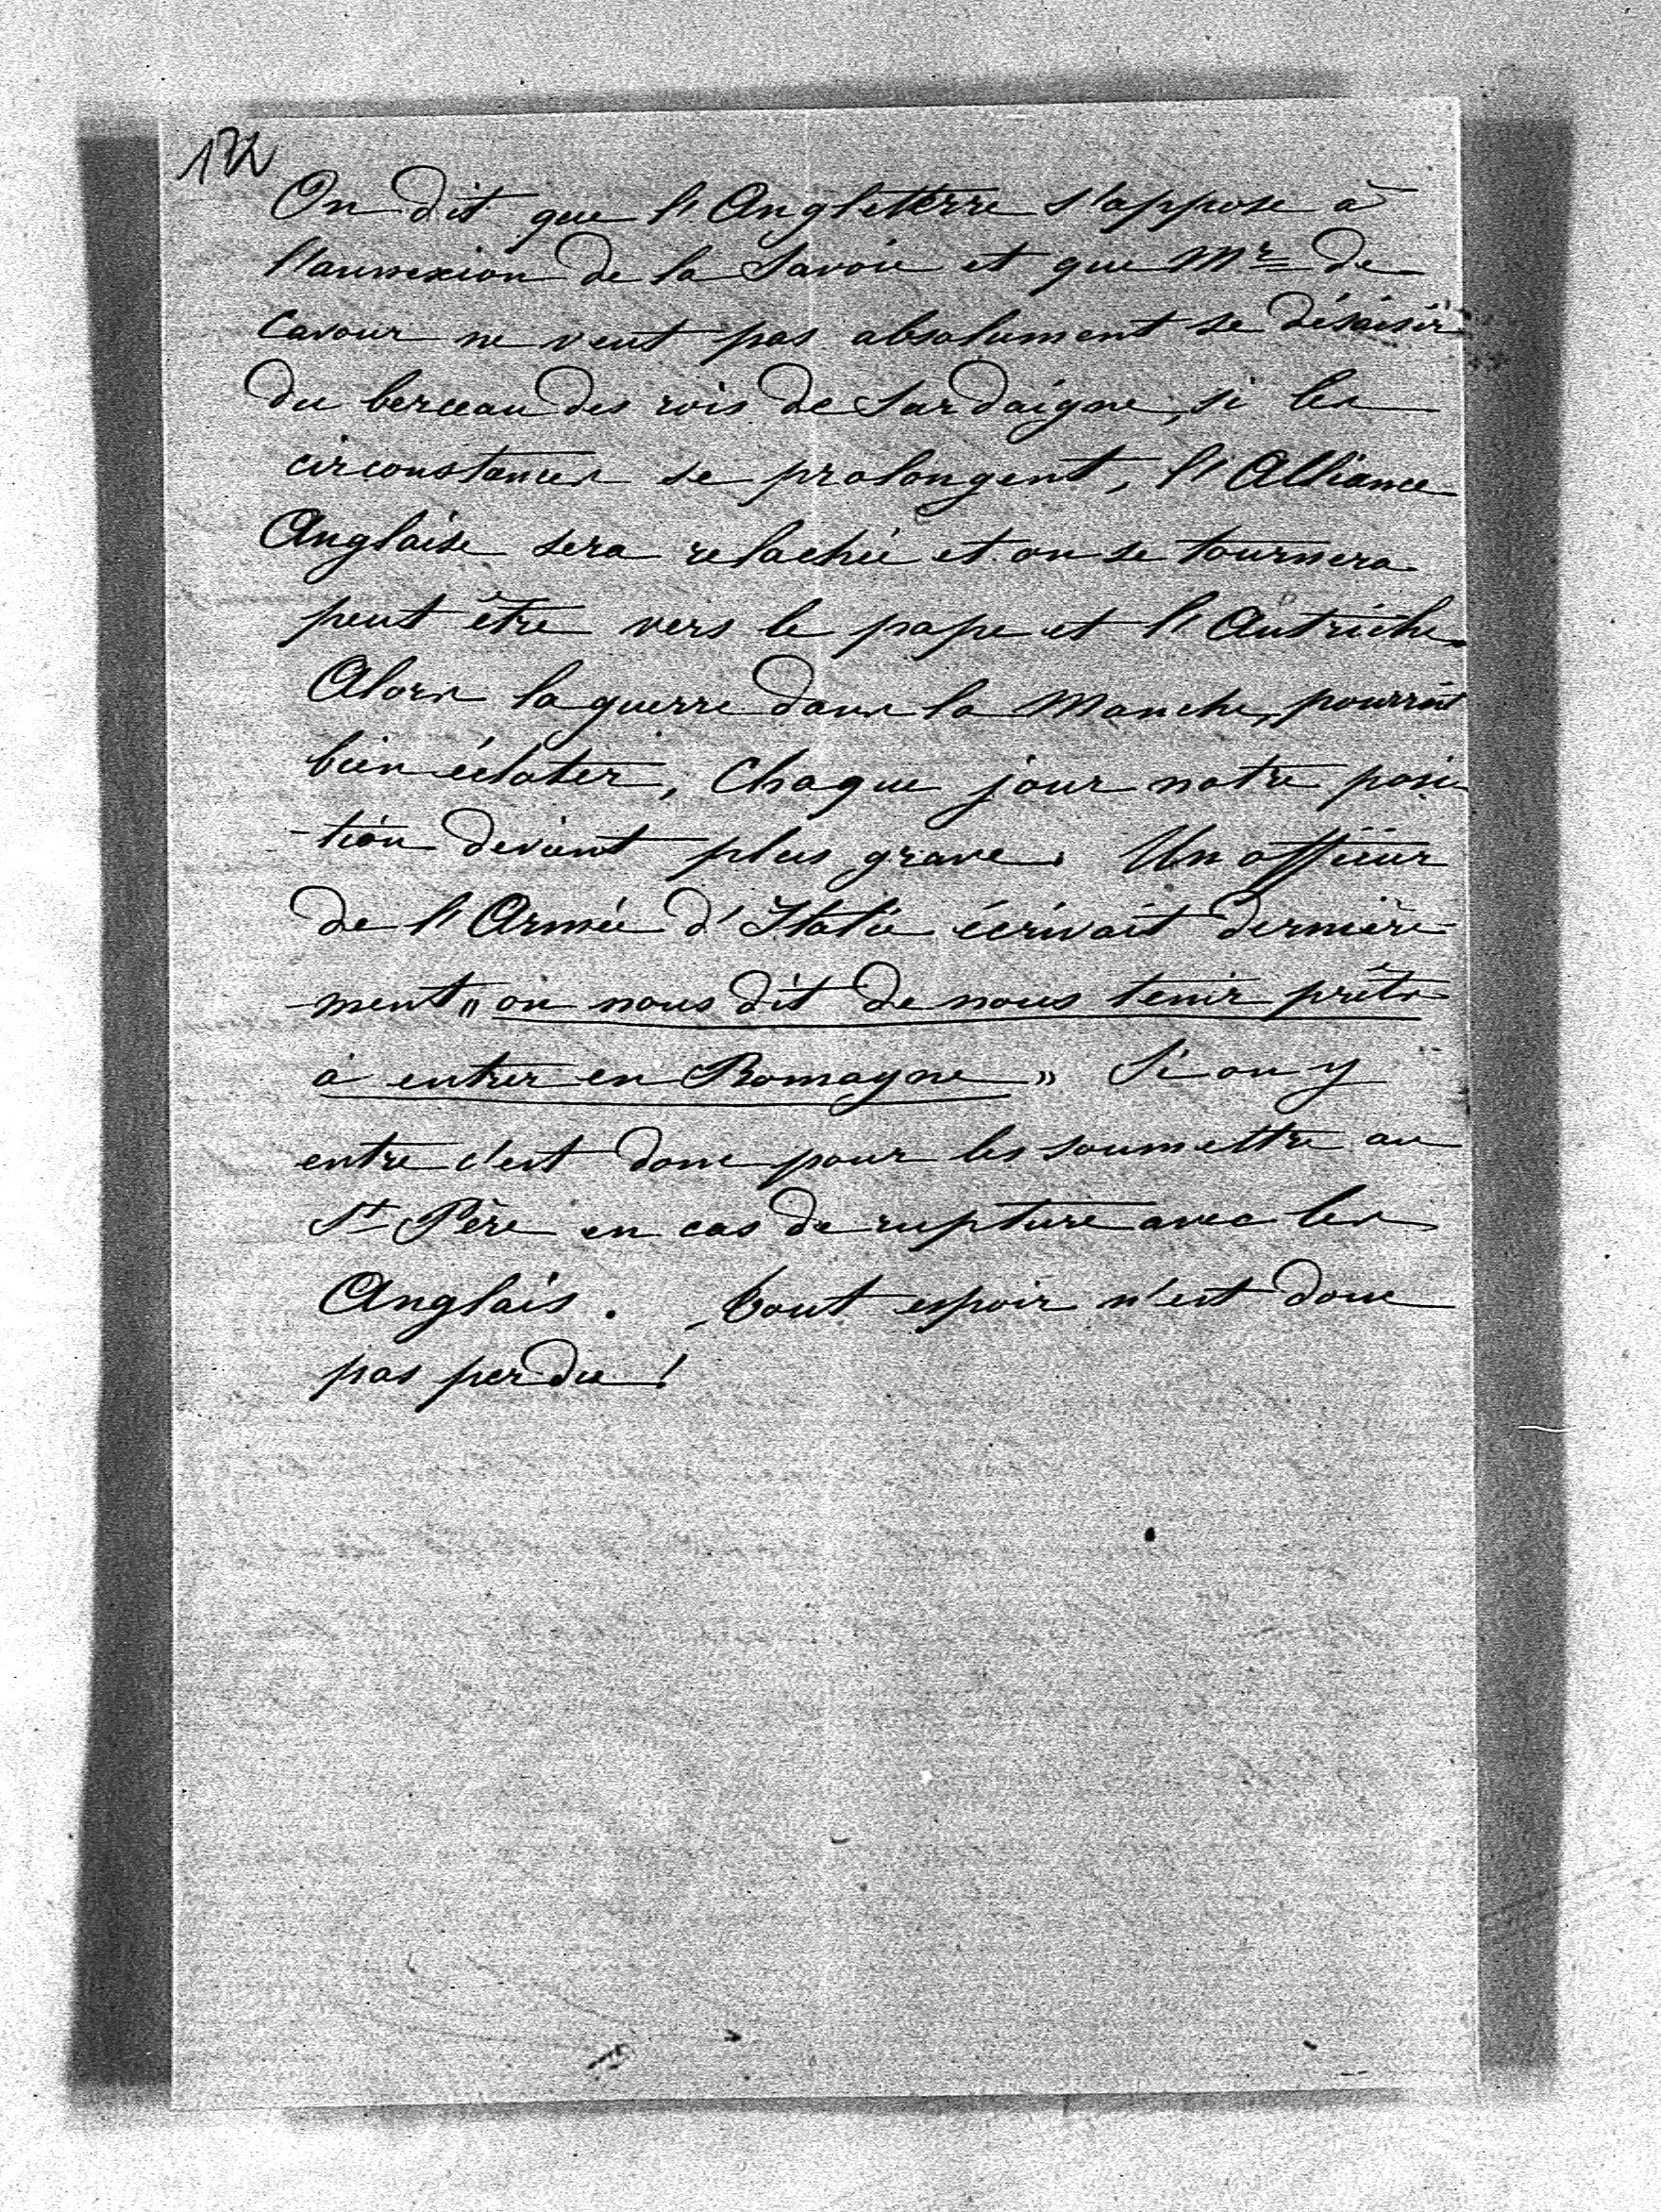 172
On dit que l'Angletterre s'oppose à
l'annexion de la Savoie et que Mr de
Cavour ne veut pas absolument se désaisir
du berceau des rois de Sardaigne, si les
circonstances se prolongent, l'Alliance
Anglaise sera relachée et on se tournera
peut être vers le pape et l'Autriche.
Alors la guerre dans la Manche, pourrait
bien éclater, Chaque jour notre posi
-tion devient plus grave. Un officier
de l'Armée d'Italie écrivait dernière
-ment " on nous dit de nous tenir prêts
à entrer en Romagne " Si on y
entre c'est donc pour les soumettre au
St Père en cas de rupture avec les
Anglais. tout espoir n'est donc
pas perdu !